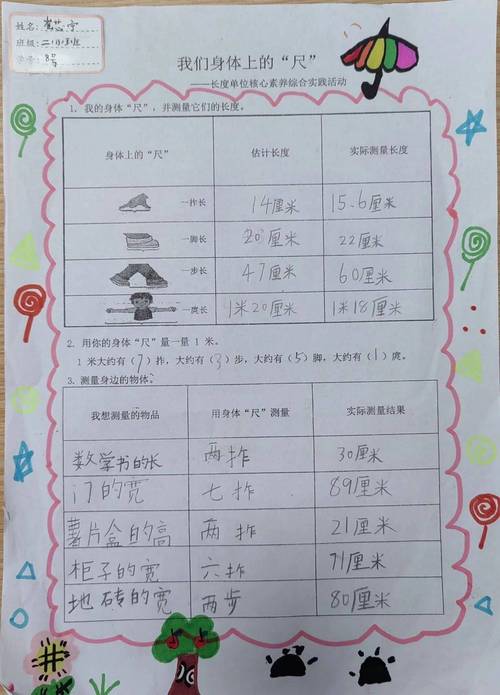 姓名:
班级:
学号: 8号
我们身体上的“尺”
——长度单位核心素养综合实践活动
1. 我的身体“尺”，并测量它们的长度。
身体上的“尺” 估计长度 实际测量长度
一拃长 14厘米 15.6厘米
一脚长 20厘米 22厘米
一步长 47厘米 60厘米
一庹长 1米20厘米 1米18厘米
2. 用你的身体“尺”量一量 1 米。
1 米大约有（7）拃，大约有（3）步，大约有（5）脚，大约有（1）庹。
3. 测量身边的物体。
我想测量的物品 用身体“尺”测量 实际测量结果
数学书的长 两拃 30厘米
门的宽 七拃 89厘米
薯片盒的高 两拃 21厘米
柜子的宽 六拃 71厘米
地砖的宽 两步 80厘米